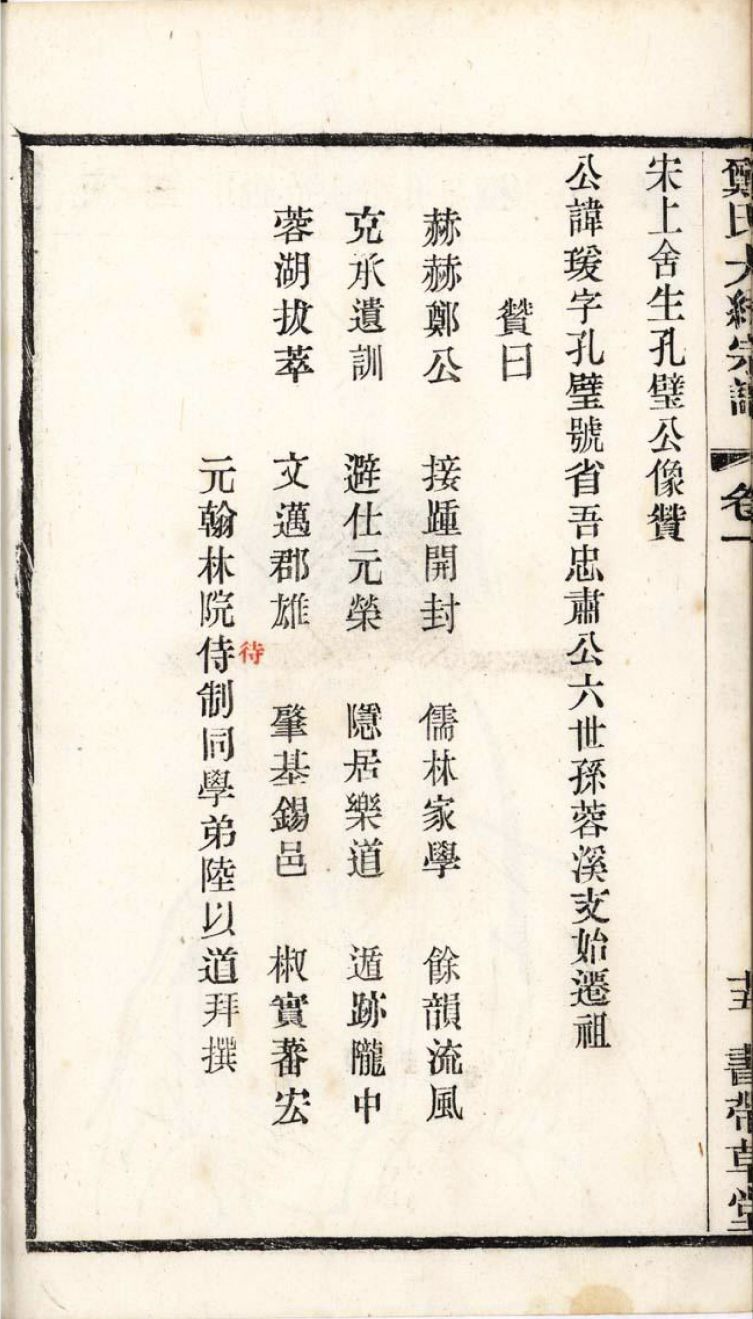 鄭氏大統宗譜 卷一 十五 書帶草堂
宋上舍生孔璧公像贊
公諱瑗字孔璧號省吾忠肅公六世孫蓉溪支始遷祖
贊曰
赫赫鄭公 接踵開封 儒林家學 餘韻流風
克承遺訓 避仕元榮 隱居樂道 遁跡隴中
蓉湖拔萃 文邁郡雄 肇基錫邑 椒實蕃宏
待
元翰林院侍制同學弟陸以道拜撰